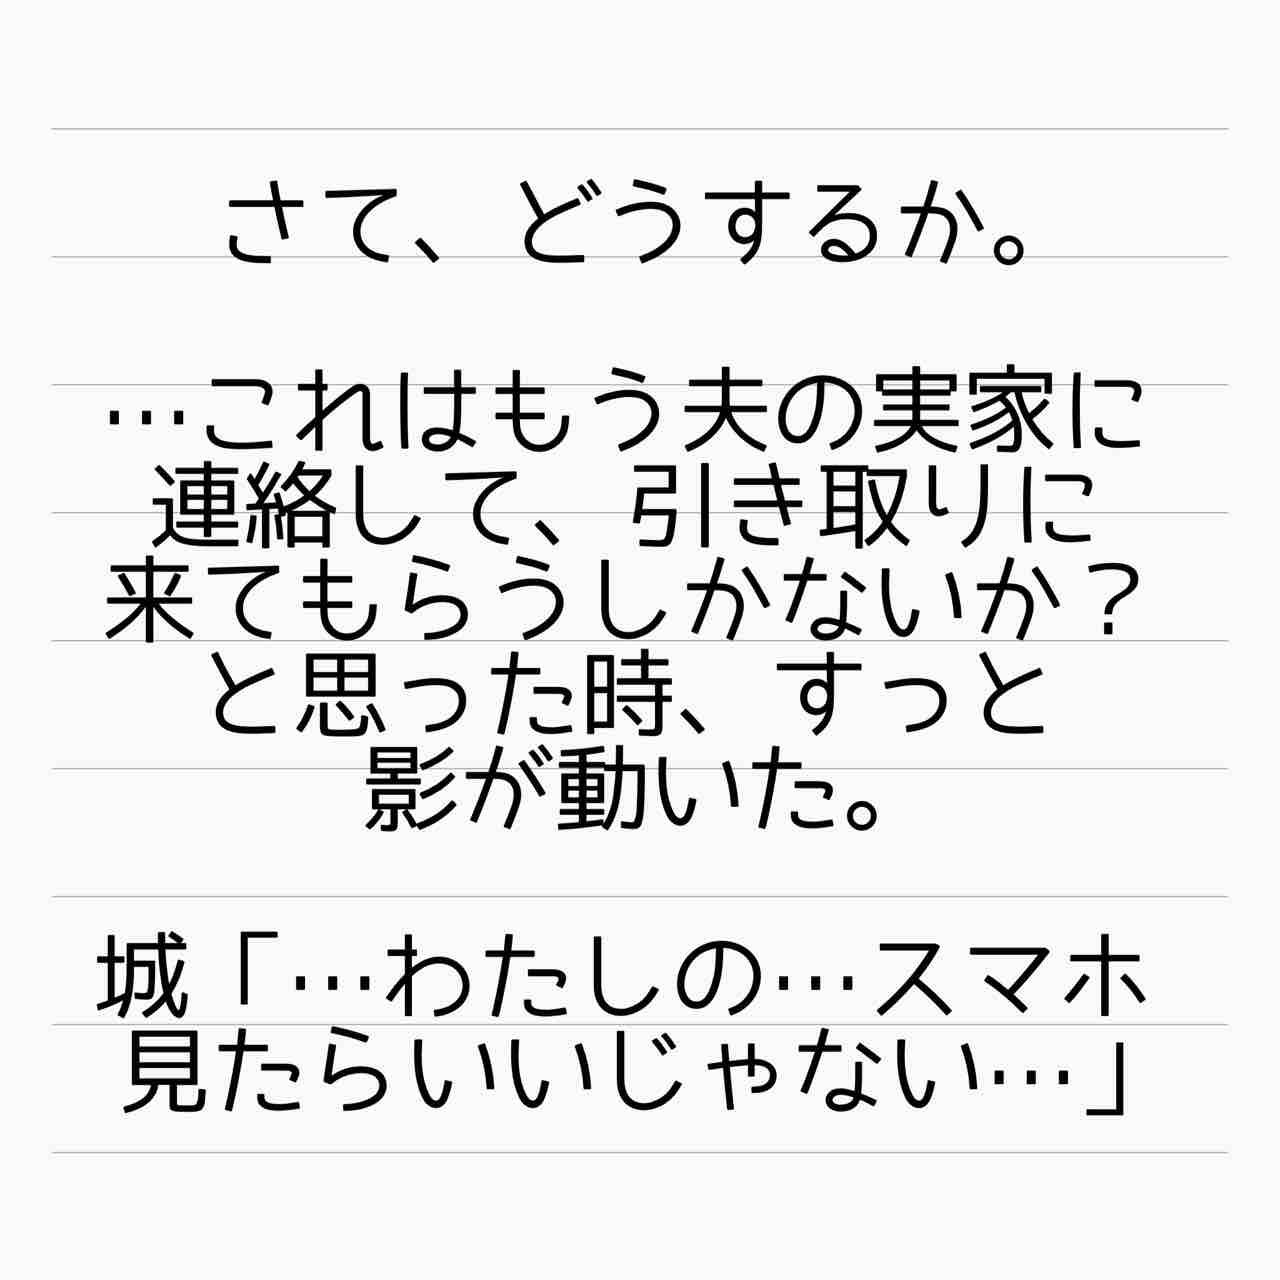 さて、どうするか。
…これはもう夫の実家に
連絡して、引き取りに
来てもらうしかないか？
と思った時、すっと
影が動いた。
城「…わたしの…スマホ
見たらいいじゃない…」